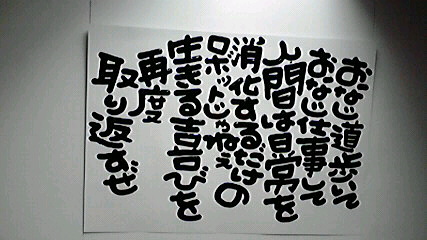 おなじ道歩いて
おなじ仕事して
人間は日常を
消化するだけの
ロボットじゃねぇ
生きる喜びを
再度
取り返すぜ